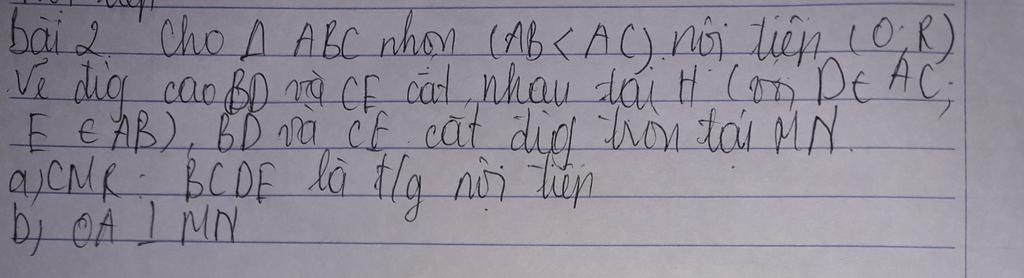 bài 2 Cho Δ ABC nhọn (AB < AC) nội tiếp (O;R)
Vẽ đg cao BD và CE cắt nhau tại H (D ∈ AC;
E ∈ AB), BD và CE cắt đg tròn tại M N.
a) CMR: BCDE là t/g nội tiếp
b) OA ⊥ MN